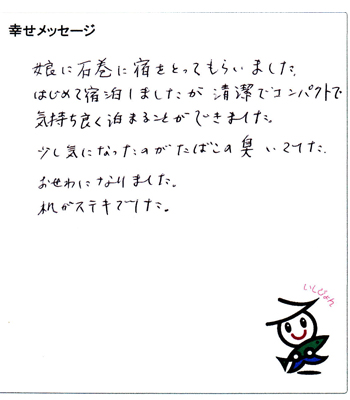 幸せメッセージ
娘に石巻に宿をとってもらいました。
はじめて宿泊しましたが清潔でコンパクトで
気持ち良く泊まることができました。
少し気になったのがたばこの臭いでした。
おせわになりました。
机がステキでした。
いしぴょん